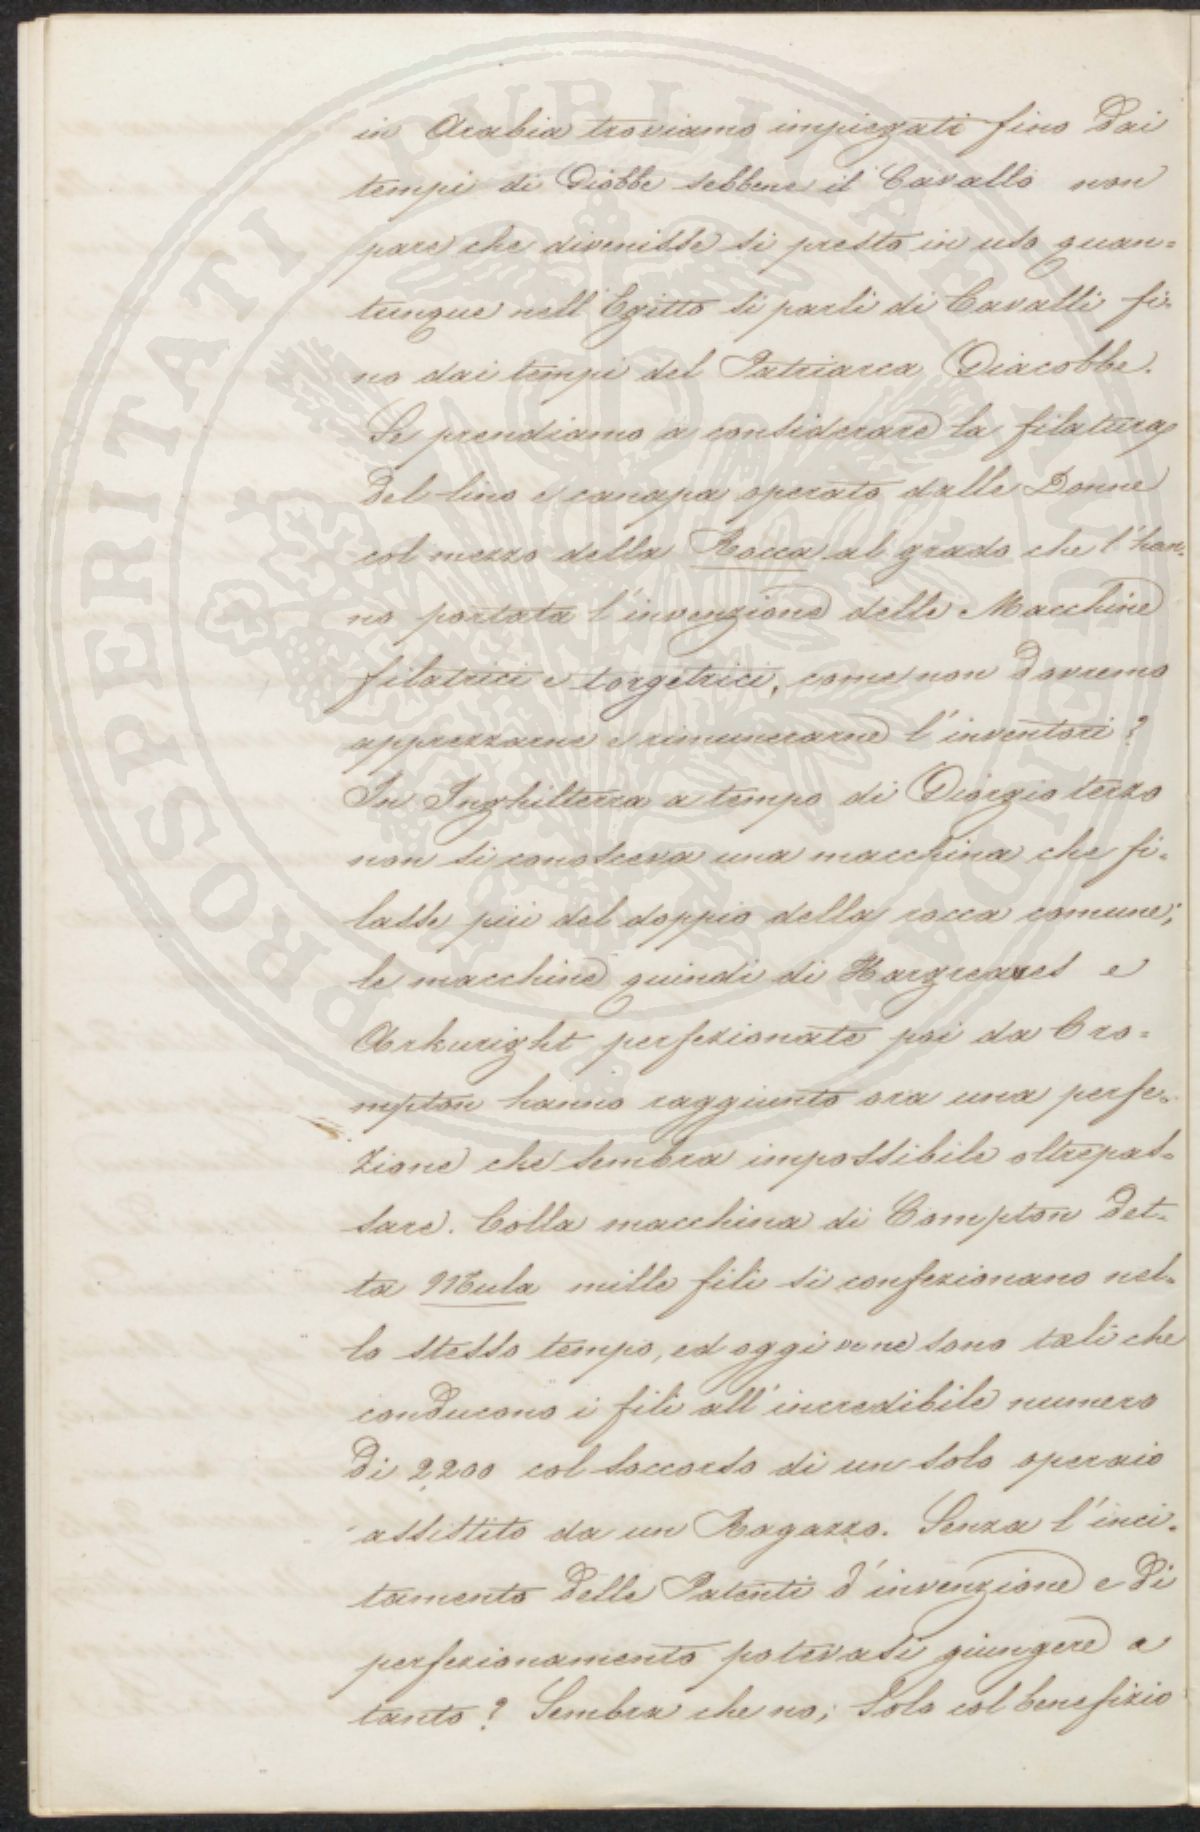 in Arabia troviamo impiegati fino dai
tempi di Giobbe sebbene il Cavallo non
pare che divenisse sì presto in uso quan=
tunque nell'Egitto si parli di Cavalli fi=
no dai tempi del Patriarca Giacobbe.
Se prendiamo a considerare la filatura
del lino e canapa operato dalle Donne
col mezzo della Rocca al grado che l'han=
no portata l'invenzione delle Macchine
filatrici e torgetrici, come non dovremo
apprezzarne e rimunerarne l'inventori?
In Inghilterra a tempo di Giorgio terzo
non si conosceva una macchina che fi=
lasse più del doppio della rocca comune;
le macchine quindi di Hargreaves e
Arkwright perfezionate poi da Cro=
mpton hanno raggiunto ora una perfe=
zione che sembra impossibile oltrepas=
sare. Colla macchina di Compton det=
ta Mula mille fili si confezionano nel=
lo stesso tempo, ed oggi ve ne sono tali che
conducono i fili all'incredibile numero
di 2,200 col soccorso di un solo operaio
assistito da un Ragazzo. Senza l'inci=
tamento delle Patenti d'invenzione e di
perfezionamento potevasi giungere a
tanto? Sembra che no; Solo col benefizio
PROSPERITATI PVBLICAE